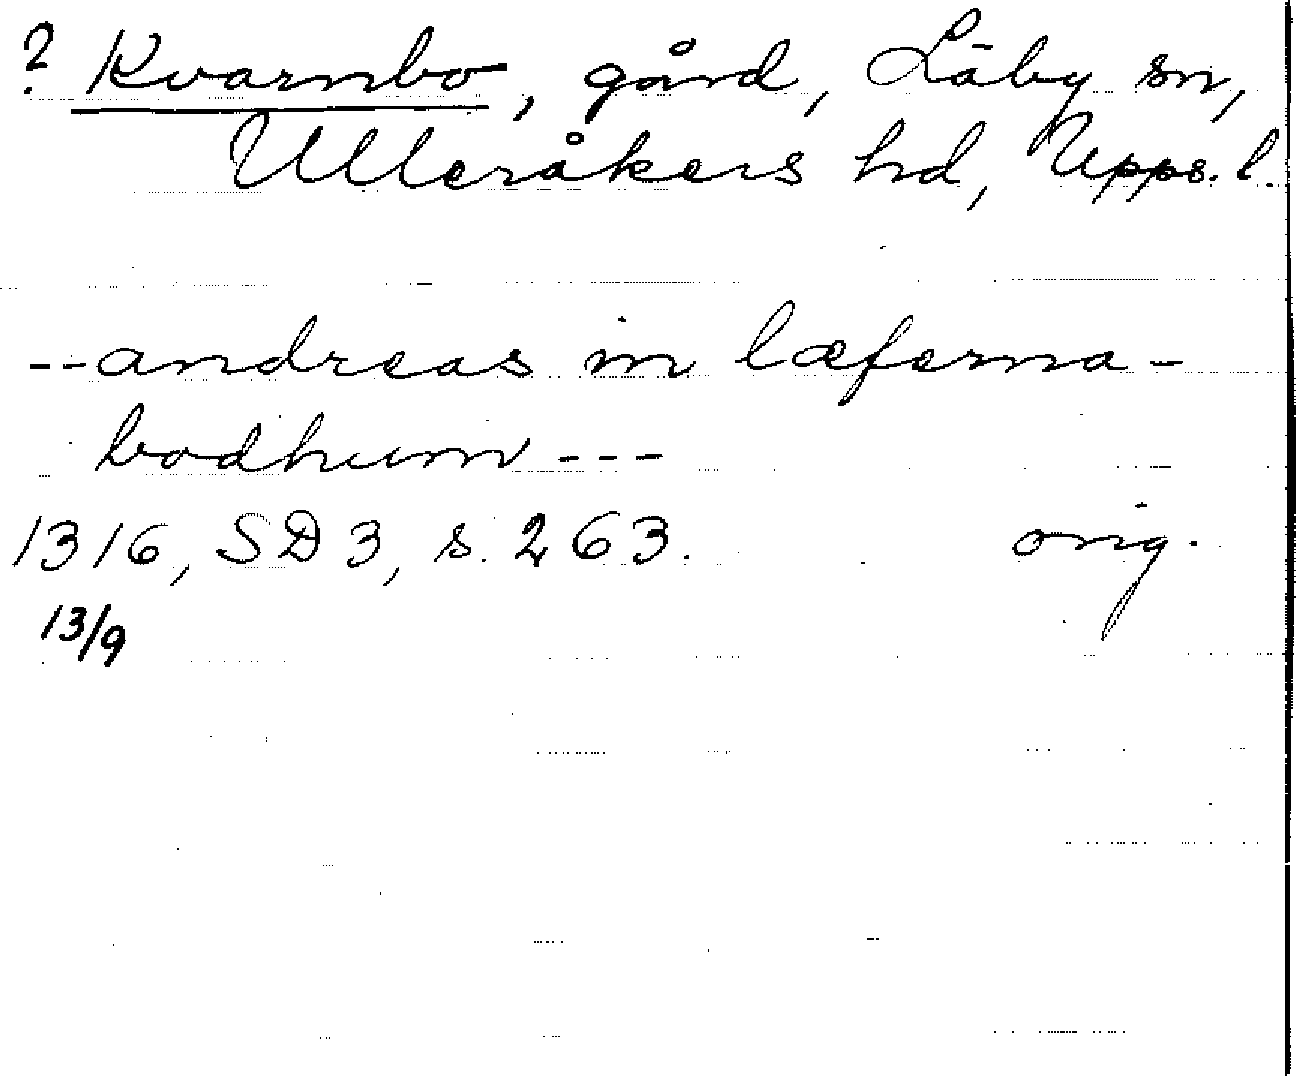 ? Kvarnbo, gård, Läby sn,
Ulleråkers hd, Upps. l.
--andreas in læferna-
bodhum---
1316, SD3, s. 263. orig.
13/9